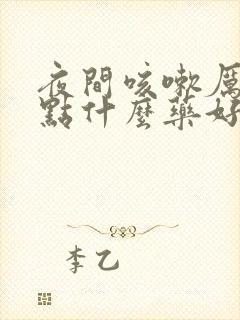 夜間咳嗽厲
點什麼藥好
李乙